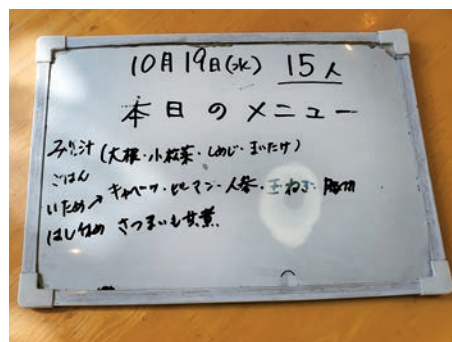 10月19日(水) 15人
本日のメニュー
みそ汁 (大根・小松菜・しめじ・まいたけ)
ごはん
いため→ キャベツ・ピーマン・人参・玉ねぎ 豚肉
はし休め さつまいも甘煮